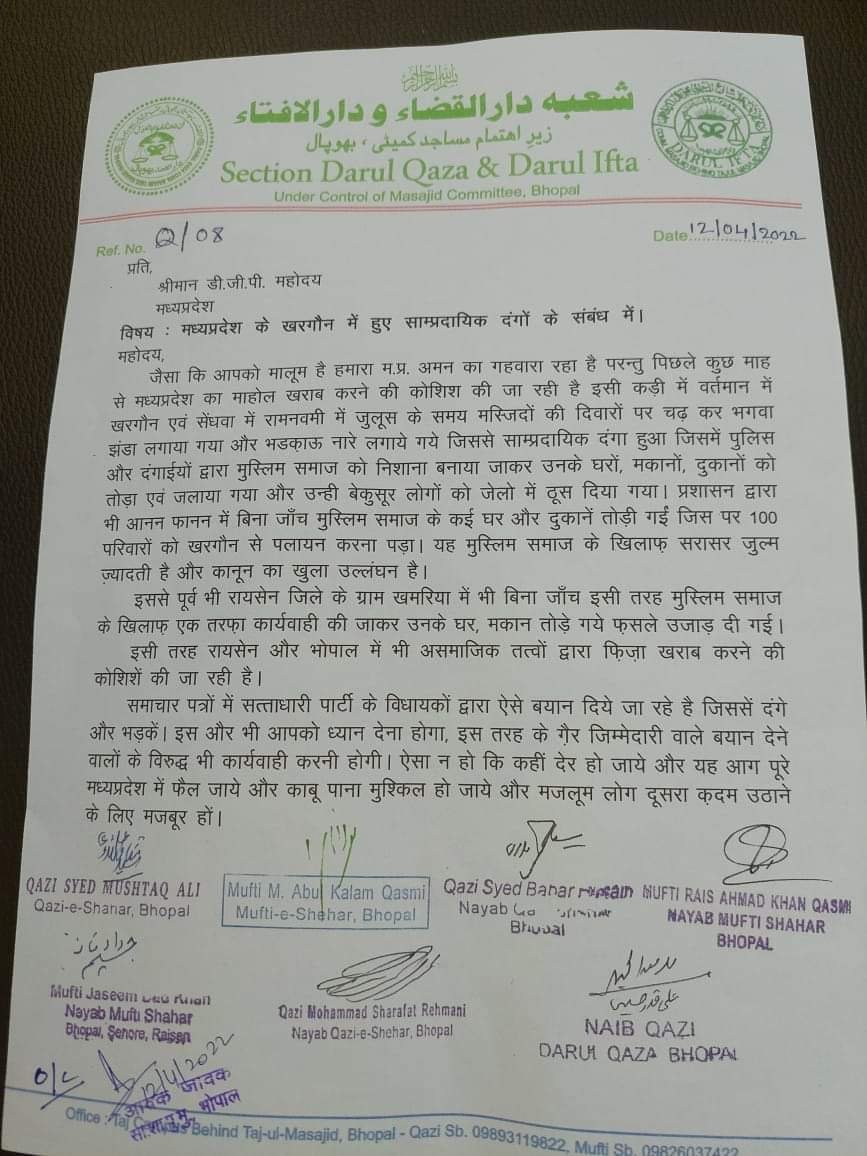 شعبہ دارالقضاء و دارالافتاء
زیرِ اھتمام مساجد کمیٹی، بھوپال
Section Darul Qaza & Darul Ifta
Under Control of Masajid Committee, Bhopal
DARUL IFTA
Ref. No. Q/08
Date 12/04/2022
प्रति,
श्रीमान डी.जी.पी. महोदय
मध्यप्रदेश
विषय : मध्यप्रदेश के खरगौन में हुए साम्प्रदायिक दंगों के संबंध में।
महोदय,
जैसा कि आपको मालूम है हमारा म.प्र. अमन का गहवारा रहा है परन्तु पिछले कुछ माह
से मध्यप्रदेश का माहोल खराब करने की कोशिश की जा रही है इसी कड़ी में वर्तमान में
खरगौन एवं सेंधवा में रामनवमी में जुलूस के समय मस्जिदों की दिवारों पर चढ़ कर भगवा
झंडा लगाया गया और भडका़ऊ नारे लगाये गये जिससे साम्प्रदायिक दंगा हुआ जिसमें पुलिस
और दंगाईयों द्वारा मुस्लिम समाज को निशाना बनाया जाकर उनके घरों, मकानों, दुकानों को
तोड़ा एवं जलाया गया और उन्ही बेकुसूर लोगों को जेलो में ठूस दिया गया। प्रशासन द्वारा
भी आनन फानन में बिना जाँच मुस्लिम समाज के कई घर और दुकानें तोड़ी गईं जिस पर 100
परिवारों को खरगौन से पलायन करना पड़ा। यह मुस्लिम समाज के खिलाफ़ सरासर जुल्म
ज़्यादती है और कानून का खुला उल्लंघन है।
इससे पूर्व भी रायसेन जिले के ग्राम खमरिया में भी बिना जाँच इसी तरह मुस्लिम समाज
के खिलाफ़ एक तरफ़ा कार्यवाही की जाकर उनके घर, मकान तोड़े गये फ़सले उजाड़ दी गई।
इसी तरह रायसेन और भोपाल में भी असमाजिक तत्वों द्वारा फ़िज़ा खराब करने की
कोशिशें की जा रही है।
समाचार पत्रों में सत्ताधारी पार्टी के विधायकों द्वारा ऐसे बयान दिये जा रहे है जिससें दंगे
और भड़कें। इस और भी आपको ध्यान देना होगा, इस तरह के ग़ैर जिम्मेदारी वाले बयान देने
वालों के विरुद्ध भी कार्यवाही करनी होगी। ऐसा न हो कि कहीं देर हो जाये और यह आग पूरे
मध्यप्रदेश में फैल जाये और काबू पाना मुश्किल हो जाये और मजलूम लोग दूसरा क़दम उठाने
के लिए मजबूर हों।
QAZI SYED MUSHTAQ ALI
Qazi-e-Shahar, Bhopal
Mufti M. Abul Kalam Qasmi
Mufti-e-Shehar, Bhopal
Qazi Syed Babar Hussain
Nayab
Bhopal
MUFTI RAIS AHMAD KHAN QASMI
NAYAB MUFTI SHAHAR
BHOPAL
Mufti Jaseem Khan
Nayab Mufti Shahar
Bhopal, Sehore, Raisen
Qazi Mohammad Sharafat Rehmani
Nayab Qazi-e-Shehar, Bhopal
NAIB QAZI
DARUL QAZA BHOPAL
O/C
12/4/2022
आवक जावक
भोपाल
Office : Taj Behind Taj-ul-Masajid, Bhopal - Qazi Sb. 09893119822, Mufti Sb. 09826037422